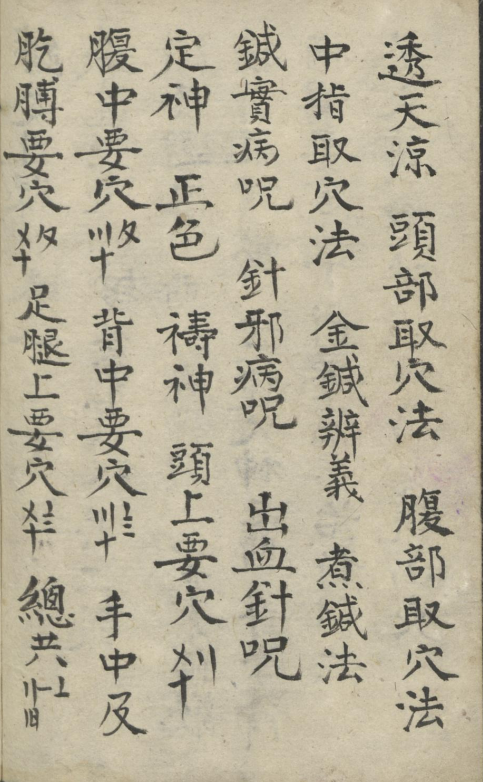 透天涼 頭部取穴法 腹部取穴法
中指取穴法 金鍼辨義 煮鍼法
鍼實病呪 針邪病呪 出血針呪
定神 正色 禱神 頭上要穴
腹中要穴 背中要穴 手中及
肐膊要穴 足腿上要穴 總共